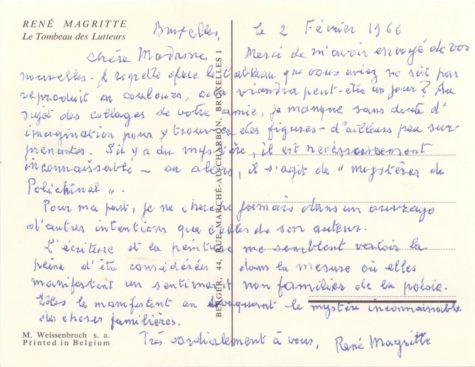 RENÉ MAGRITTE
Le Tombeau des Lutteurs
Bruxelles, le 2 Février 1966
chère Madame, Merci de m'avoir envoyé de vos
nouvelles. Je regrette que le tableau que vous aviez ne soit pas
reproduit en couleurs, cela viendra peut-être un jour ? Au
sujet des collages de votre amie, je manque sans doute d'
imagination pour y trouver des figures - d'ailleurs peu sur-
prenantes. S'il y a du mystère, il est nécessairement
inconnaissable - ou alors, il s'agit de "mystères de
Polichinel".
Pour ma part, je ne cherche jamais dans un ouvrage
d'autres intentions que celles de son auteur.
L'écriture et la peinture me semblent valoir la
peine d'être considérées dans la mesure où elles
manifestent un sentiment non familier de la poésie.
Elles le manifestent en évoquant le mystère inconnaissable
des choses familières.
Très cordialement à vous, René Magritte
M. Weissenbruch s. a.
Printed in Belgium
BERGER, 44, RUE MARCHÉ-AU-CHARBON, BRUXELLES 1